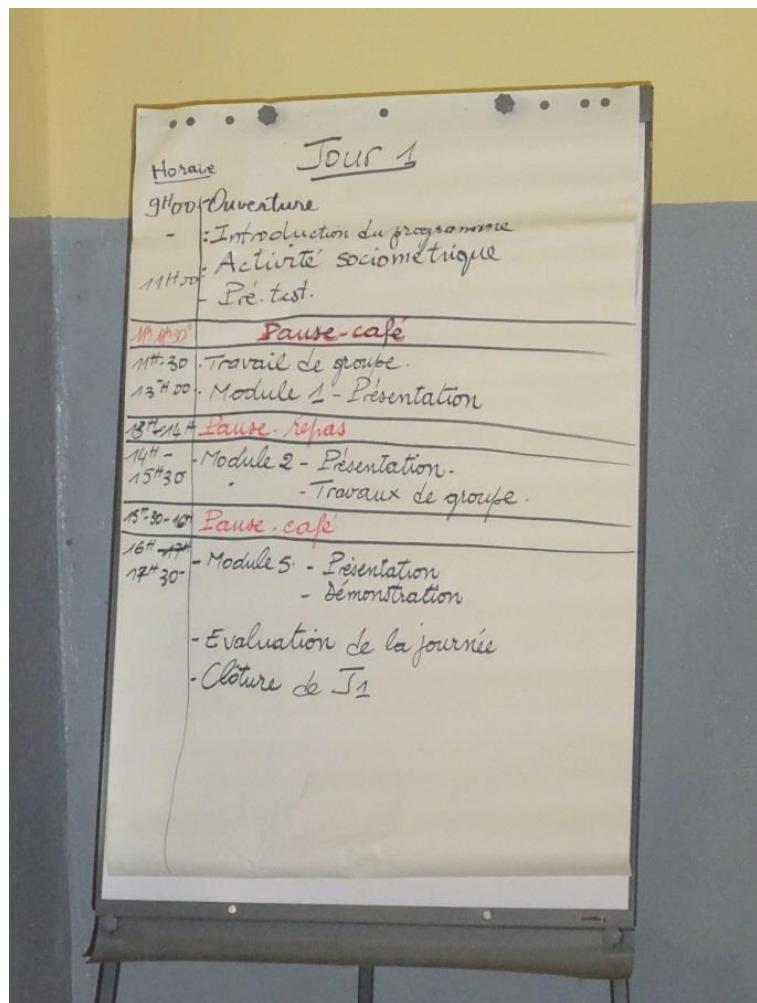 Jour 1
Horaire
9H00 - Ouverture
- : Introduction du programme
11H00 - Activité sociométrique
- Pré-test.
Pause-café
11H-30 - Travail de groupe.
13H00 - Module 1 - Présentation
13H-14H Pause-repas
14H - - Module 2 - Présentation -
15H30 - Travaux de groupe.
15H-30-16H Pause-café
16H-17H - Module 5. - Présentation
17H30- - Démonstration
- Evaluation de la journée
- Clôture de J1